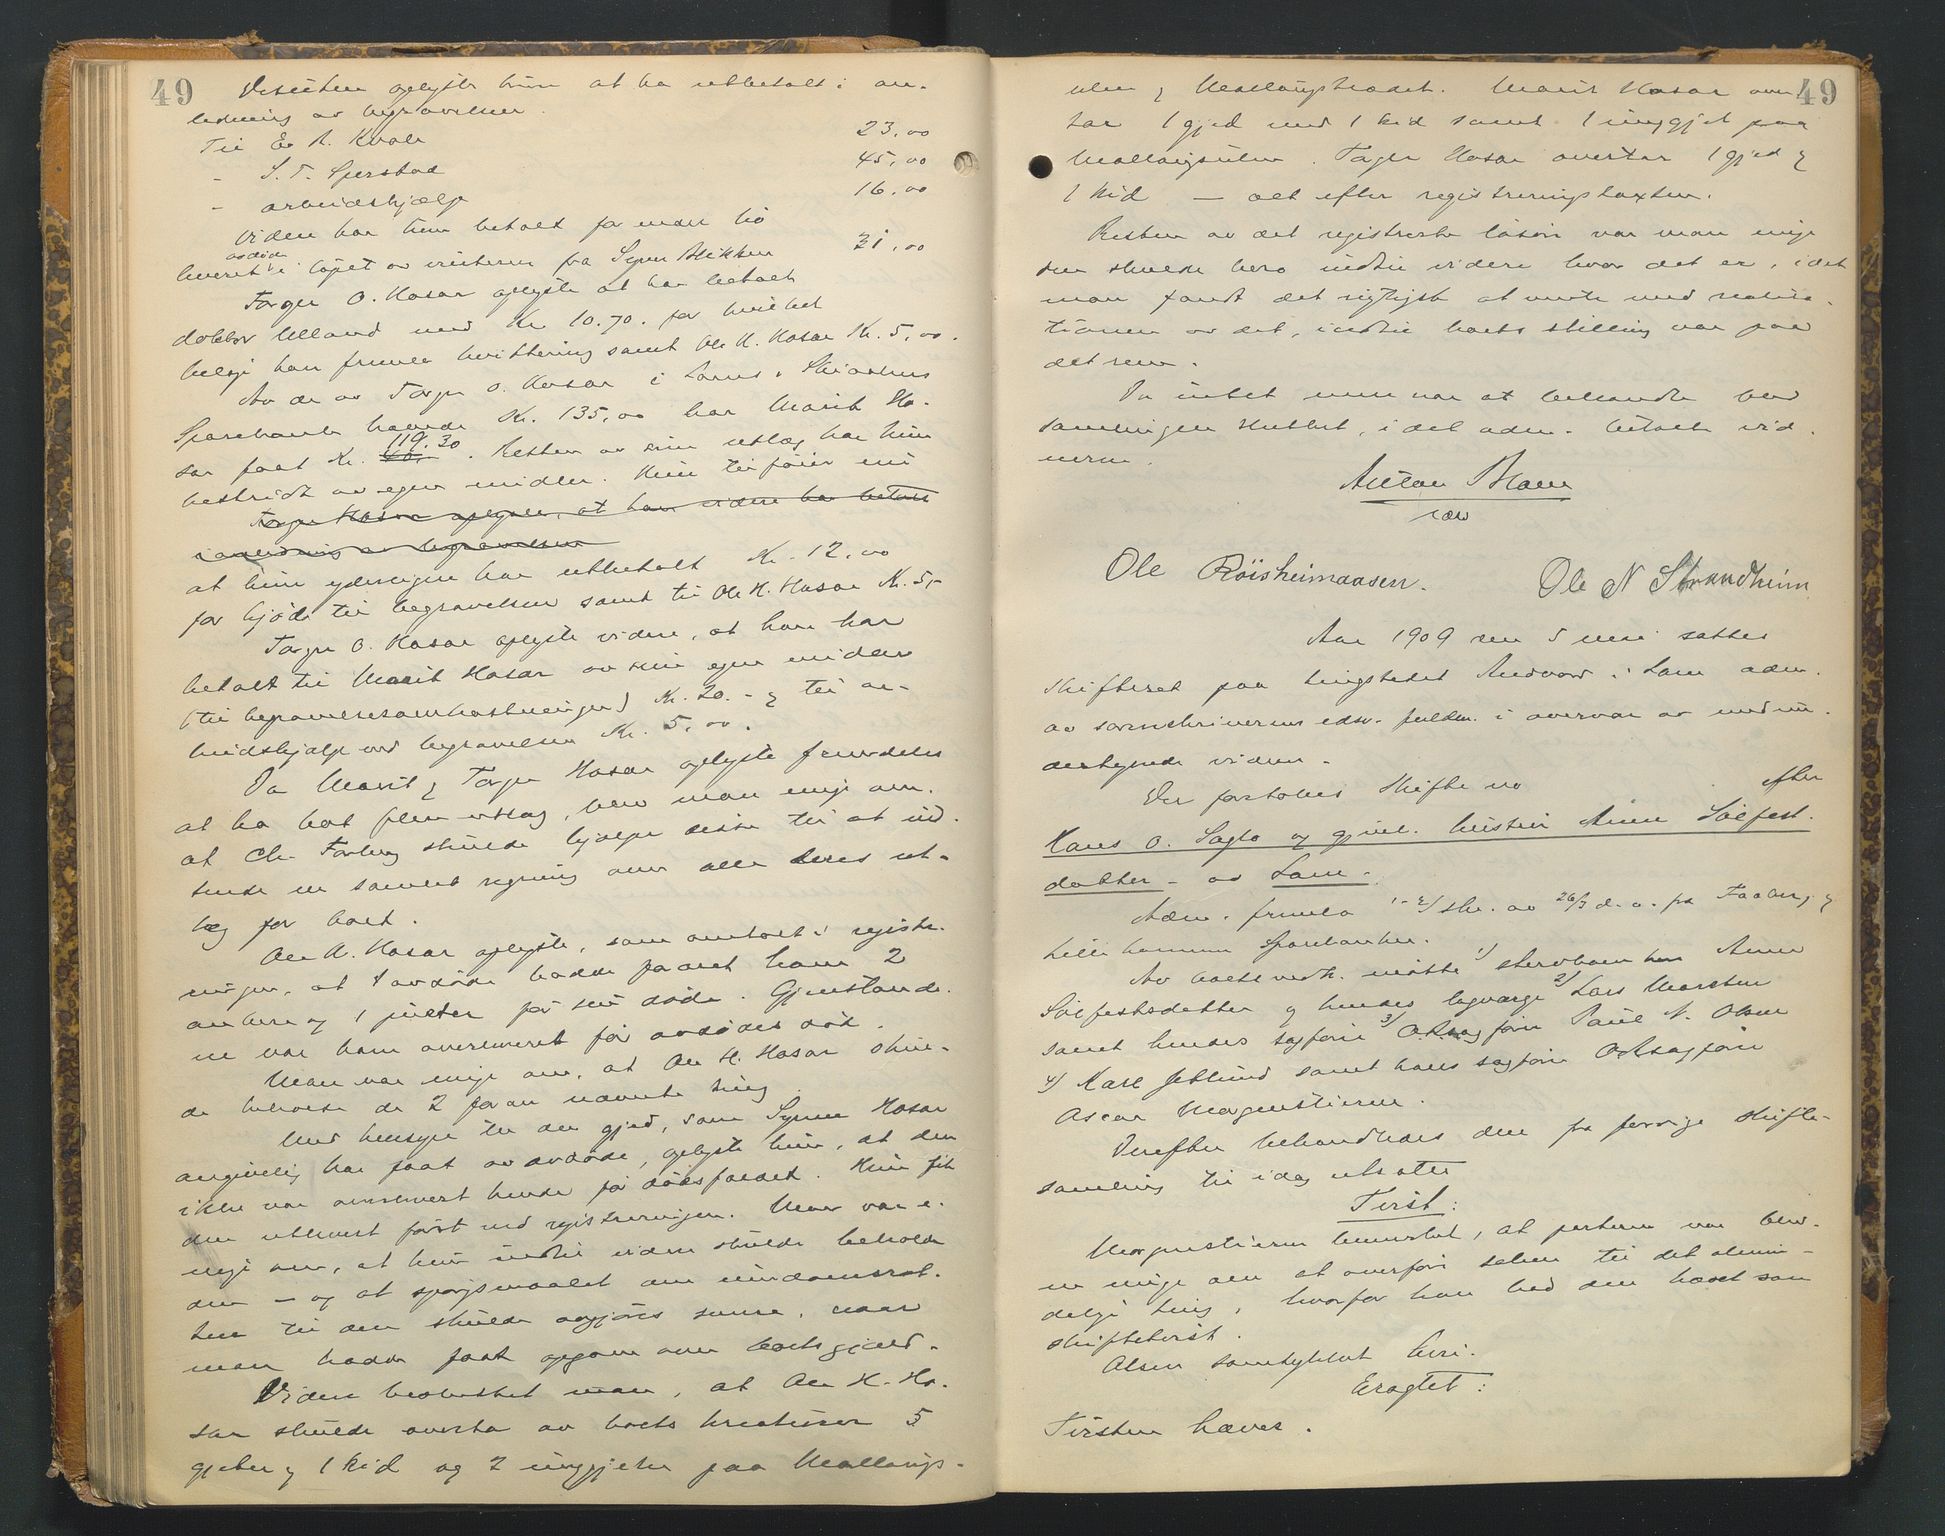 49
Desuten oplyste hun at ha utbetalt i an-
ledning av begravelsen.
Til E. A. Kvale 23,00
- S. T. Sperstad 45,00
- arbeidshjælp 16,00
Videre har hun betalt for
levert avdøde i løpet av vinteren fra Synne Blekken 21,00
Torger O. Hosar oplyste at ha betalt
doktor Ulland med Kr. 10.70. for hvilket
beløp han fremla kvittering samt Ole H. Hosar Kr. 5,00.
Av de av Torger O. Hosar i Loms & Skiaakers
Sparebank hævede Kr. 135,00 har Marit Ho-
sar faat Kr. 119.30. Resten av sine utlæg har hun
bestridt av egne midler. Hun tilføier nu
Torger Hosar oplyser, at han videre har betalt
i anledning av begravelsen
at hun yderligere har utbetalt Kr. 12,00
for kjød til begravelsen samt til Ole H. Hosar Kr. 5,-
Torger O. Hosar oplyste videre, at han har
betalt til Marit Hosar av sine egne midler
(til begravelsesomkostninger) Kr. 20.- og til ar-
beidshjælp ved begravelsen Kr. 5,00.
Da Marit og Torger Hosar oplyste fremdeles
at ha hat flere utlæg, blev man enige om,
at Chr. Forberg skulde hjælpe disse til at ind-
sende en samlet regning over alle deres ut-
læg for boet.
Ole H. Hosar oplyste, som omtalt i registre-
ringen, at avdøde hadde foræret ham 2
ankere og 1 før sin død. Gjenstande-
ne var ham overleveret før avdødes død.
Man var enige om, at Ole H. Hosar skul-
de beholde de 2 foran nævnte ting.
Med hensyn til den gjed, som Synne Hosar
angivelig har faat av avdøde, oplyste hun, at den
ikke var overlevert hende før dødsfaldet. Hun fik
den utlevert først ved registreringen. Man var e-
nige om, at hun indtil videre skulde beholde
den - og at spørsmaalet om eiendomsret-
ten til den skulde avgjøres senere, naar
man hadde faat opgave over boets gjæld.
Videre besluttet man, at Ole H. Ho-
sar skulde overta av boets kreaturer 5
gjeter og 1 kid og 2 unggjeter paa Mallangs-
49
ulen og Mallangstrædet. Marit Hosar over-
tar 1 gjed med 1 kid samt 1 unggjet paa
Mallangsulen. Torger Hosar overtar 1 gjed og
1 kid - alt efter registreringstaxten.
Resten av det registrerte løsøre var man enige
om skulde bero indtil videre hvor det er, idet
man fandt det rigtigst at vente med realisa-
tionen av det, indtil boets stilling var paa
det rene.
Da intet mere var at behandle blev
samlingen sluttet, idet adm. betalte vid-
nerne.
Anton Blom
Ole Röisheimaasen. Ole N Strandheim
Aar 1909 den 5 mai sattes
skifteret paa tingstedet Andvord i Lom adm.
av sorenskriverens edsv. fuldm. i overvær av undunder-
tegnede vidner.
Der foretokes Skifte no efter
Hans O. Sagto og gjenl. hustru Anne Sølfest-
datter - av Lom.
Adm. fremla 1-2/ skr. av 26/3 d.a. fra Faaberg og
Lillehammer Sparebanker.
Av boets vedk. møtte 1) Anne
Sølfestsdatter og hendes lagværge 2) Lars Marstein
samt hendes sagfører 3) O.R.sagfører Paul N. Olsen
4) Karl Jetlund samt hans sagfører O.R.sagfører
Oscar Morgenstierne.
Derefter behandledes den fra forrige skifte-
samling til idag utsatte
Tvist:
Morgenstierne bemerket, at parterne var blev-
ne enige om at overføre saken til det almin-
delige ting, hvorfor han bad den hævet som
skiftetvist.
Olsen samtykket heri.
Eragtet:
Tvisten hæves.